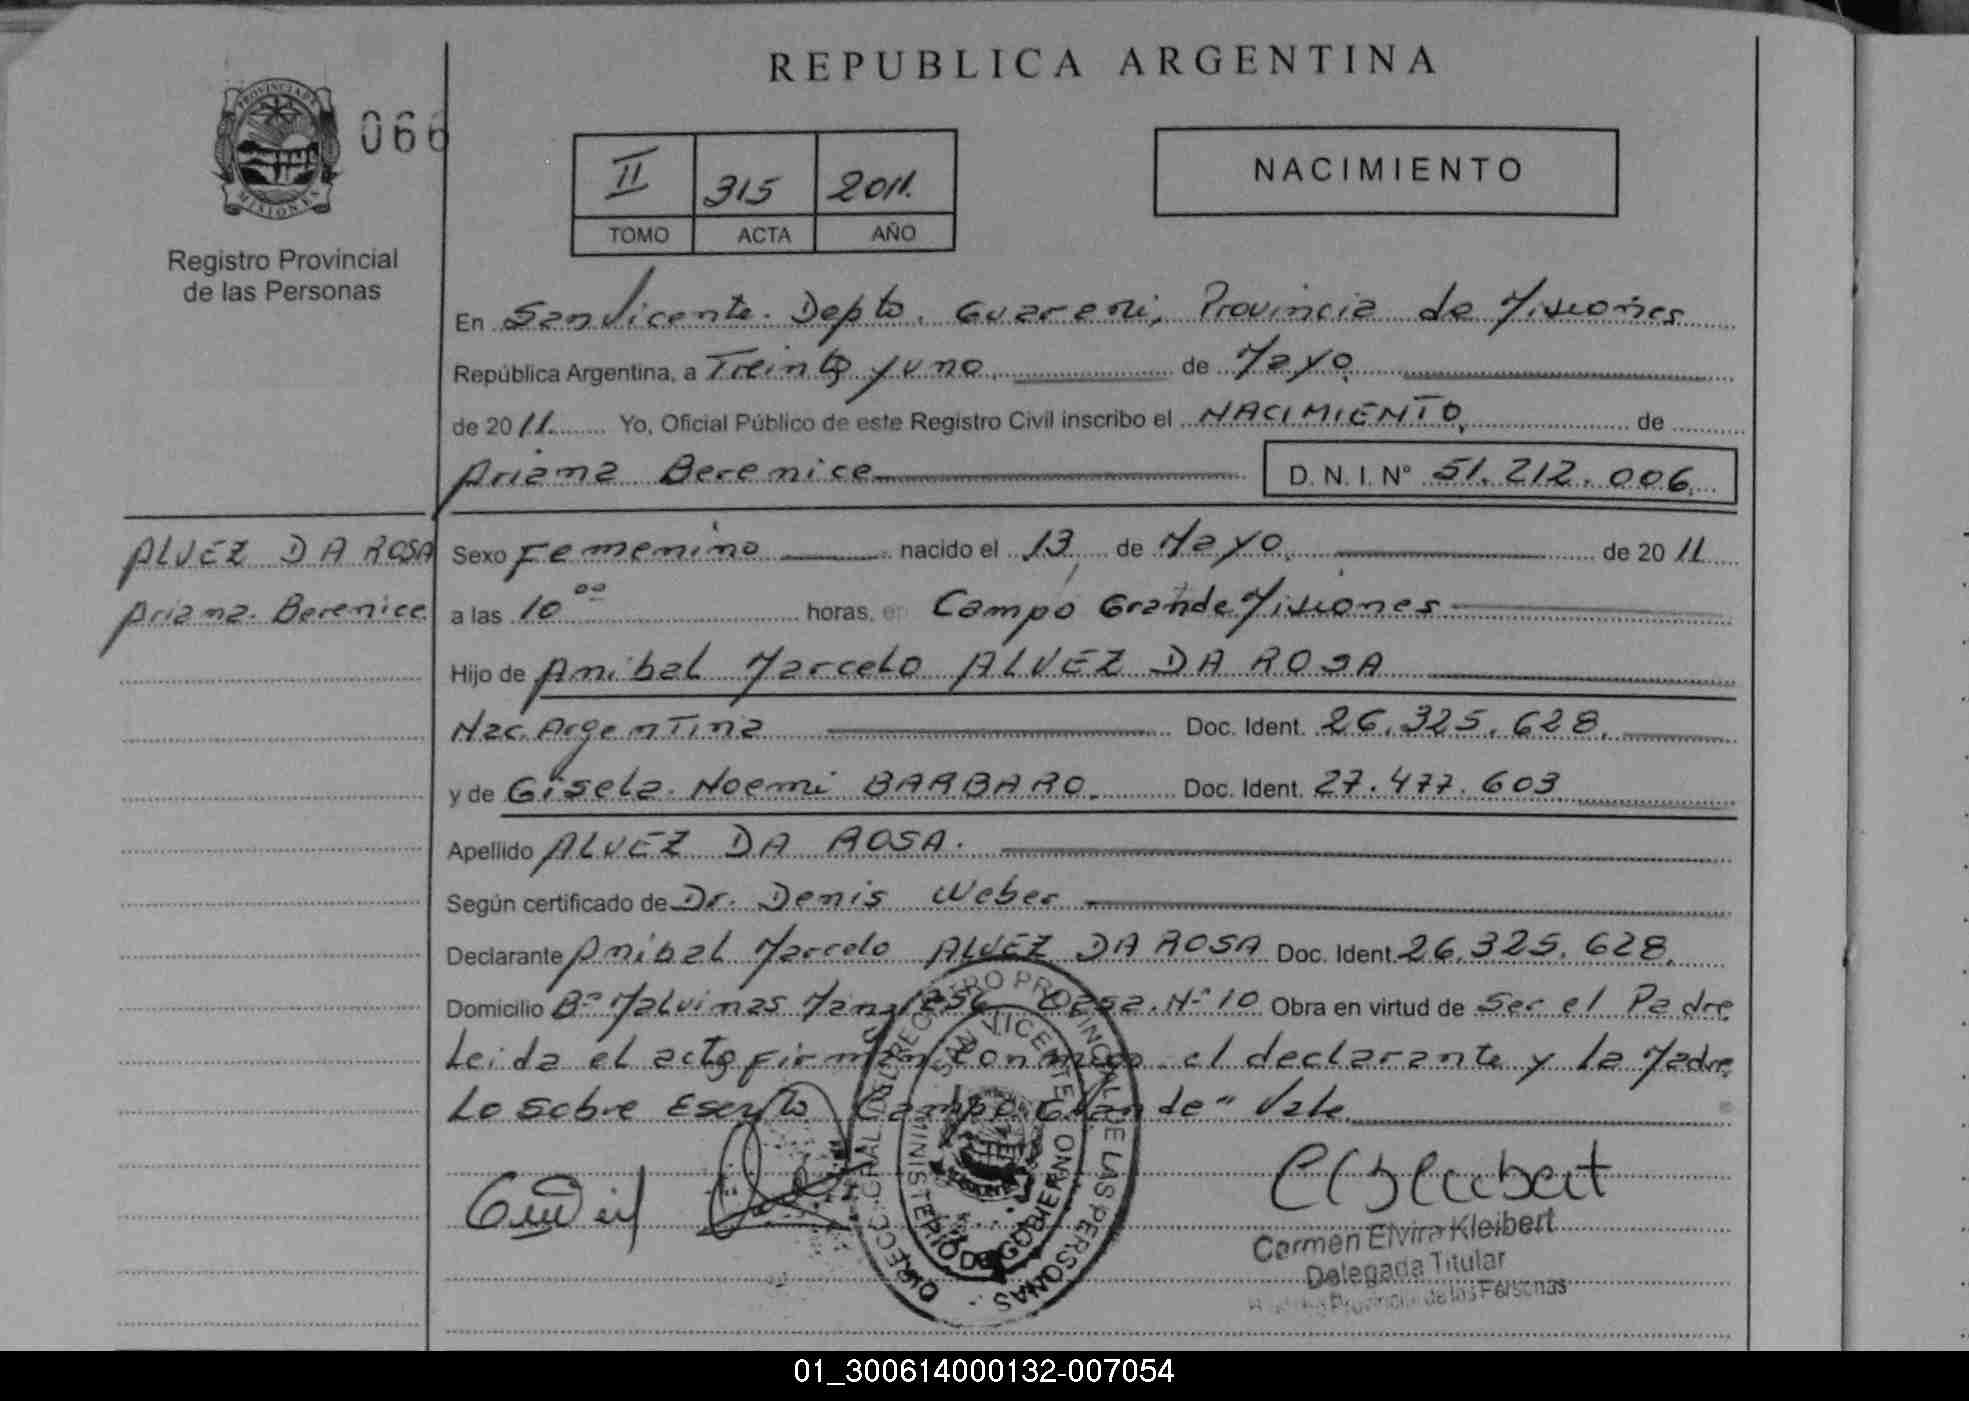 REPUBLICA ARGENTINA
PROVINCIA DE
MISIONES
066
Registro Provincial
de las Personas
II 315 2011.
TOMO ACTA AÑO
NACIMIENTO
En San Vicente. Depto. Guarani, Provincia de Misiones
República Argentina, a Treinta y uno de Mayo
de 2011 Yo, Oficial Público de este Registro Civil inscribo el NACIMIENTO, de
Ariana Berenice D. N. I. N° 51.212.006
ALVEZ DA ROSA
Ariana Berenice
Sexo Femenino nacido el 13 de Mayo de 2011
a las 10 00 horas, en Campo Grande Misiones
Hijo de Anibal Marcelo ALVEZ DA ROSA
Nac. Argentina Doc. Ident. 26.325.628.
y de Gisela Noemi BARBARO. Doc. Ident. 27.477.603
Apellido ALVEZ DA ROSA.
Según certificado de Dr. Denis Weber
Declarante Anibal Marcelo ALVEZ DA ROSA Doc. Ident. 26.325.628.
Domicilio B° Malvinas Casa N° 10 Obra en virtud de Ser el Padre
Leida el acta firman conmigo el declarante y la Madre
Lo sobre Escrito "Campo Grande" Vale
DIRECC. GRAL DEL REGISTRO PROVINCIAL DE LAS PERSONAS
SAN VICENTE
MINISTERIO DE GOBIERNO
Carmen Elvira Kleibert
Delegada Titular
Provincial de las Personas
01_300614000132-007054